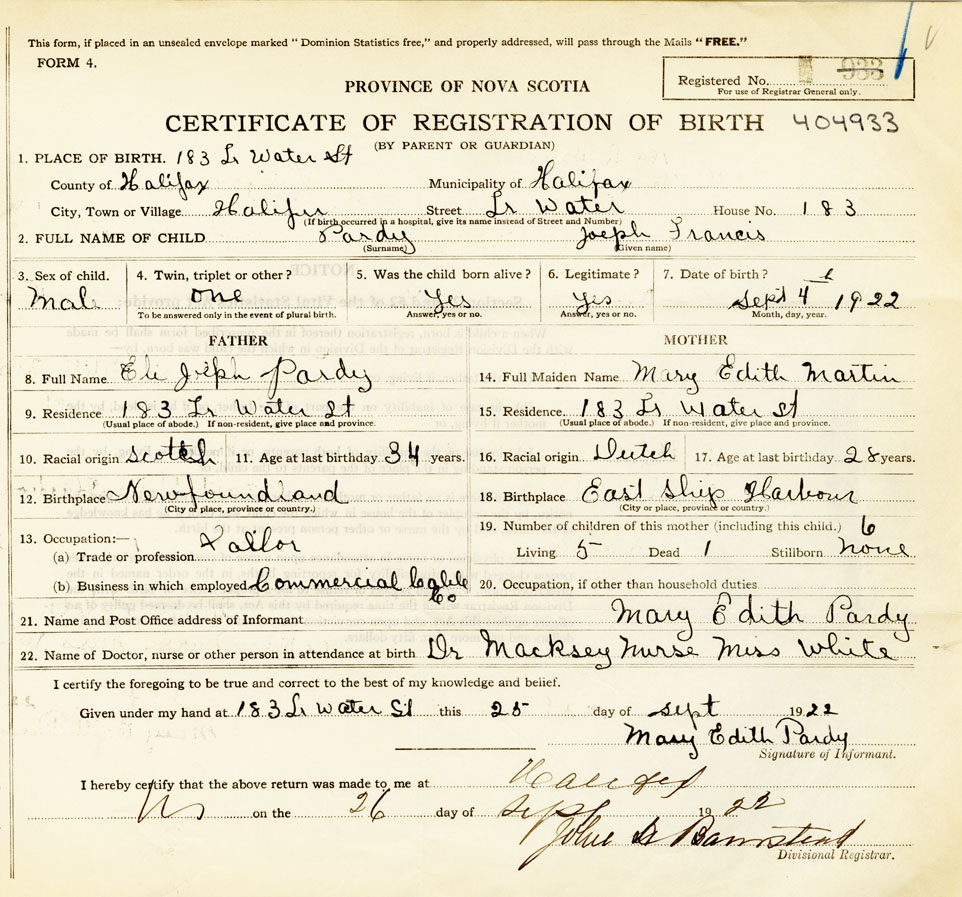 This form, if placed in an unsealed envelope marked "Dominion Statistics free," and properly addressed, will pass through the Mails "FREE."
FORM 4.
Registered No. 933
For use of Registrar General only.
PROVINCE OF NOVA SCOTIA
CERTIFICATE OF REGISTRATION OF BIRTH 404933
(BY PARENT OR GUARDIAN)
1. PLACE OF BIRTH. 183 Lr Water St
County of Halifax Municipality of Halifax
City, Town or Village Halifax Street Lr Water House No. 183
(If birth occurred in a hospital, give its name instead of Street and Number)
2. FULL NAME OF CHILD Pardy Joseph Francis
(Surname) (Given name)
3. Sex of child. 4. Twin, triplet or other? 5. Was the child born alive? 6. Legitimate? 7. Date of birth?
Male one Yes Yes Sept 4 1922
To be answered only in the event of plural birth. Answer, yes or no. Answer, yes or no. Month, day, year.
FATHER MOTHER
8. Full Name Eli Joseph Pardy 14. Full Maiden Name Mary Edith Martin
9. Residence 183 Lr Water St 15. Residence 183 Lr Water St
(Usual place of abode.) If non-resident, give place and province. (Usual place of abode.) If non-resident, give place and province.
10. Racial origin Scottish 11. Age at last birthday 34 years. 16. Racial origin Dutch 17. Age at last birthday 28 years.
12. Birthplace Newfoundland 18. Birthplace East Ship Harbour
(City or place, province or country.) (City or place, province or country.)
13. Occupation:— 19. Number of children of this mother (including this child.) 6
(a) Trade or profession Sailor Living 5 Dead 1 Stillborn none
(b) Business in which employed Commercial Cable Co 20. Occupation, if other than household duties
21. Name and Post Office address of Informant Mary Edith Pardy
22. Name of Doctor, nurse or other person in attendance at birth Dr Macksey Nurse Miss White
I certify the foregoing to be true and correct to the best of my knowledge and belief.
Given under my hand at 183 Lr Water St this 25 day of Sept 1922
Mary Edith Pardy
Signature of Informant.
I hereby certify that the above return was made to me at Halifax
NS on the 26 day of Sept 1922
John Barnstead
Divisional Registrar.